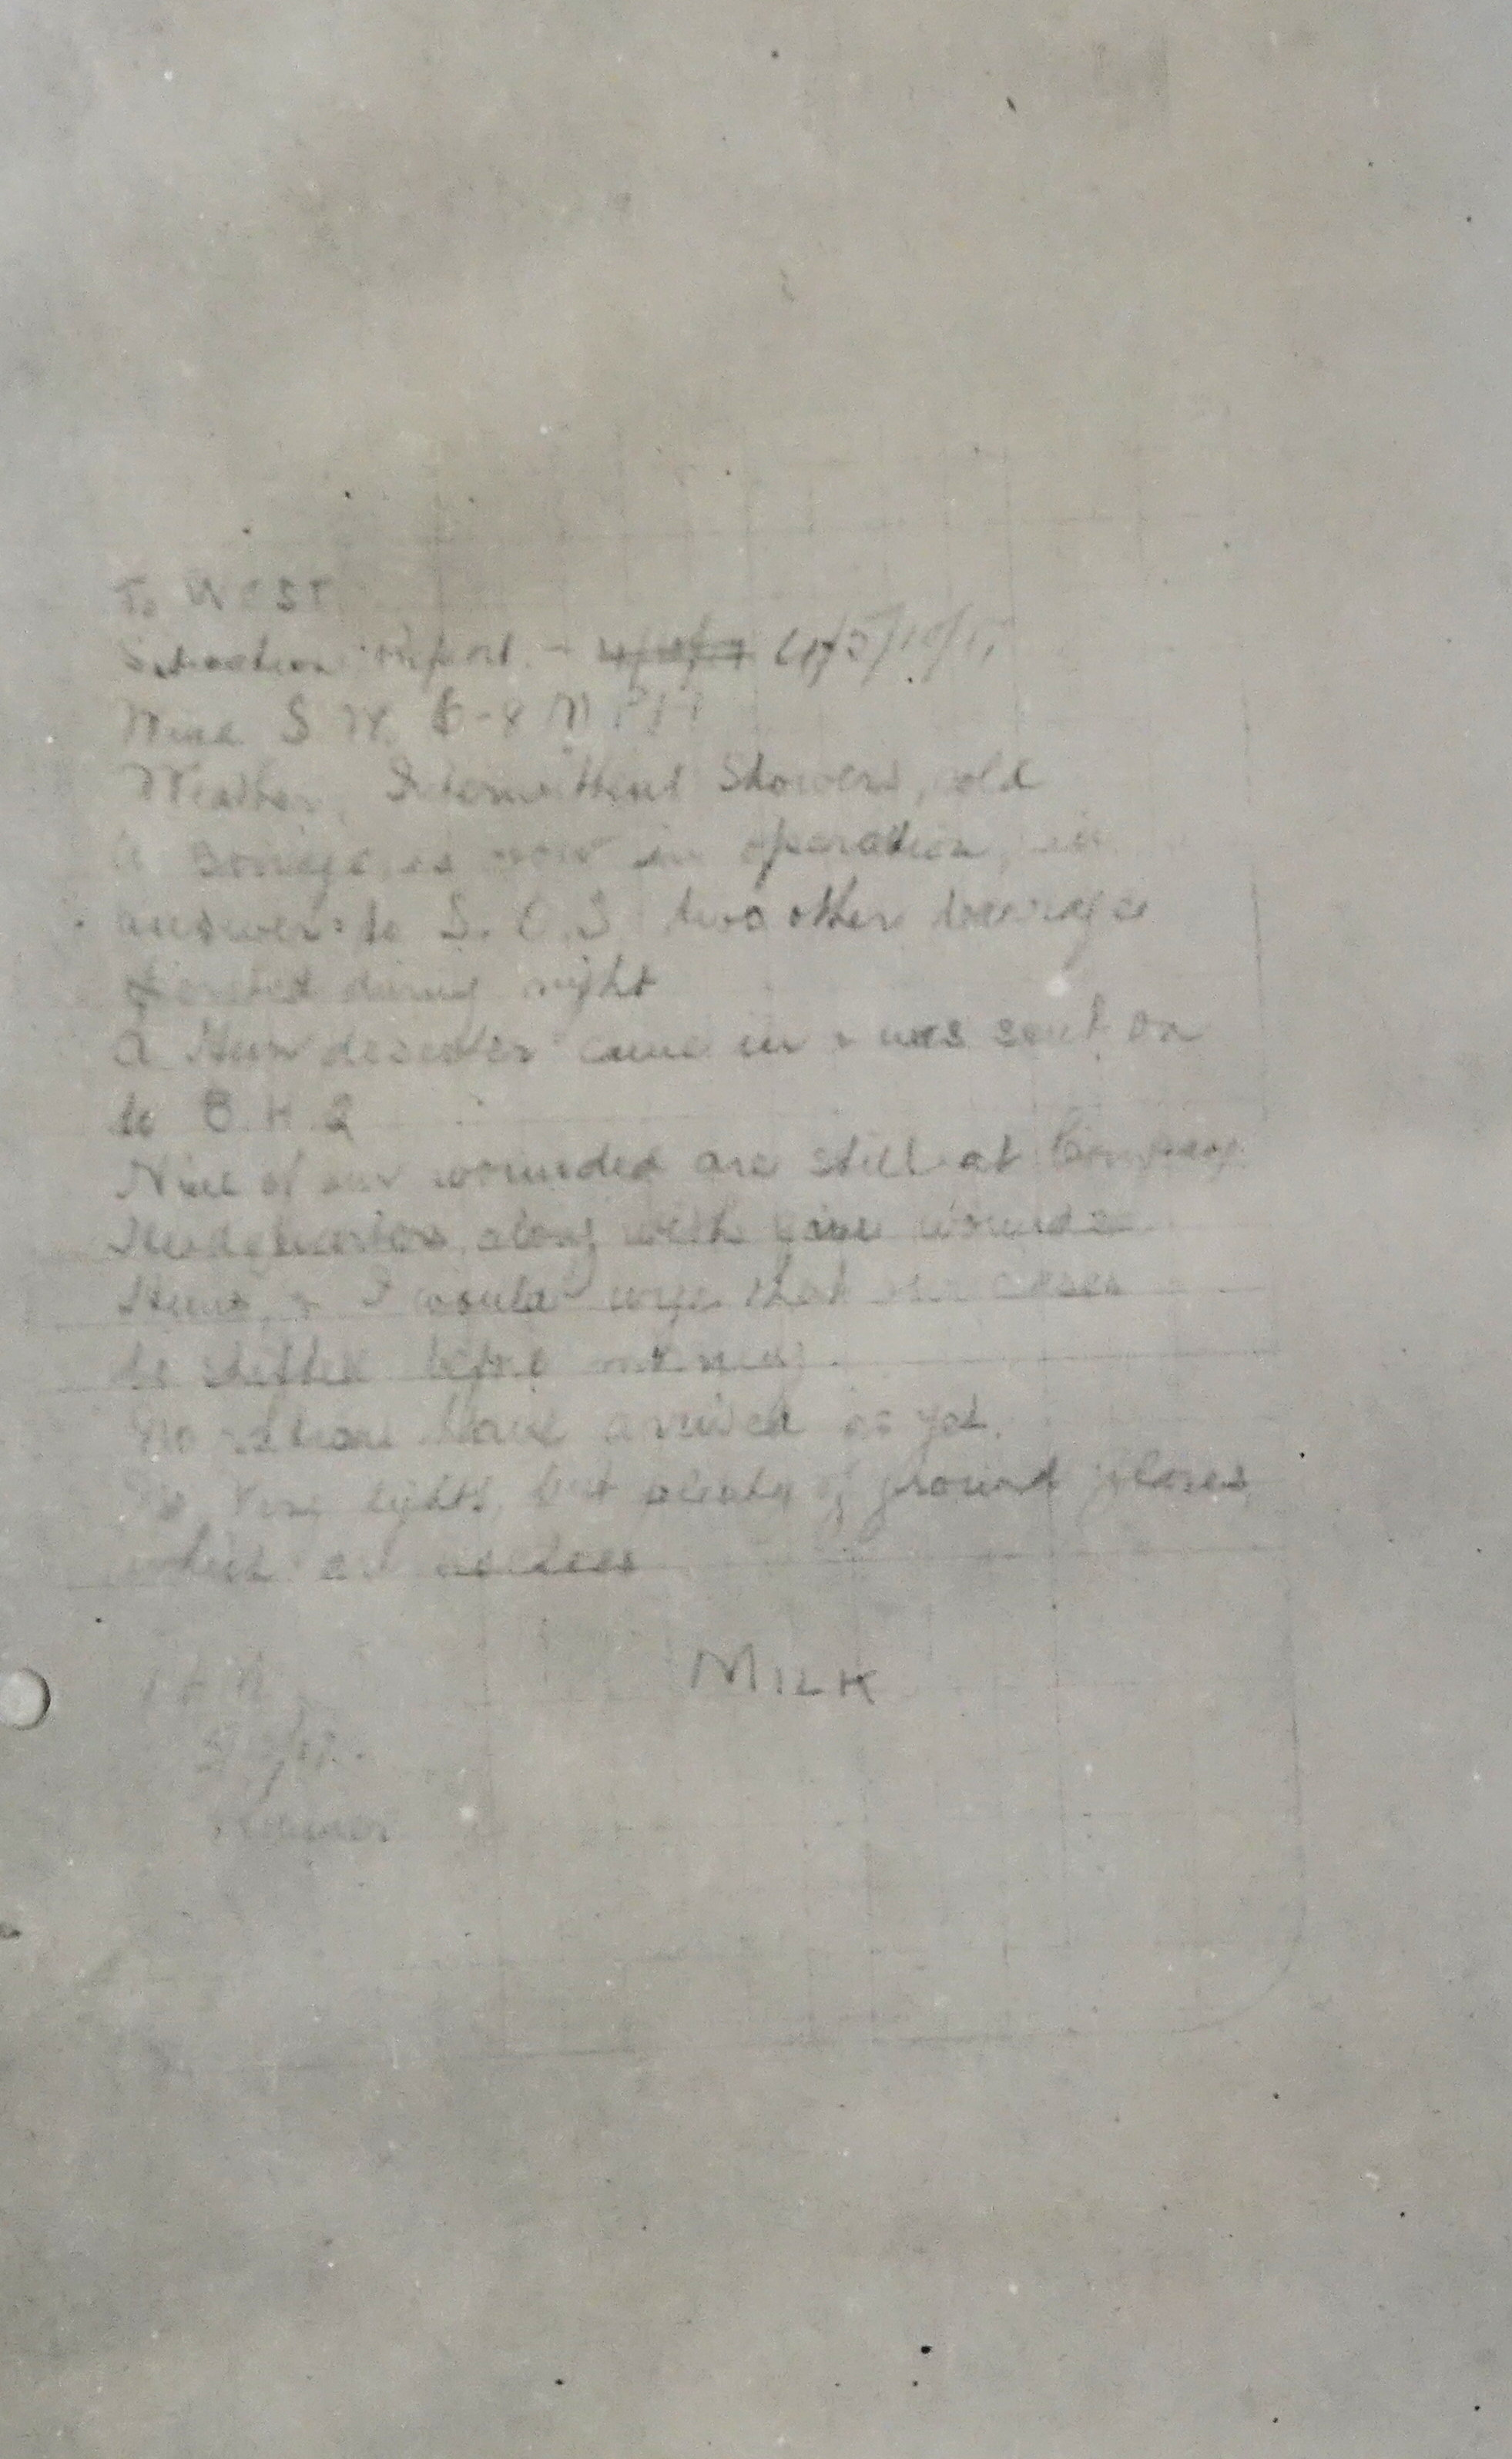 To WEST
Situation report. - 4/10/17 4/5/10/17
Wind S.W. 6-8 MPH
Weather, Intermittent Showers, cold
A Barrage is now in operation, in
answer to S.O.S. two other barrages
during night
A Hun deserter came in & was sent on
to B.H.Q
Nine of our wounded are still at Company
Headquarters along with nine wounded
Huns, & I would urge that cases
be shifted before morning.
No rations have arrived as yet.
No Very lights, but plenty of ground flares
which are useless
MILK
Runner